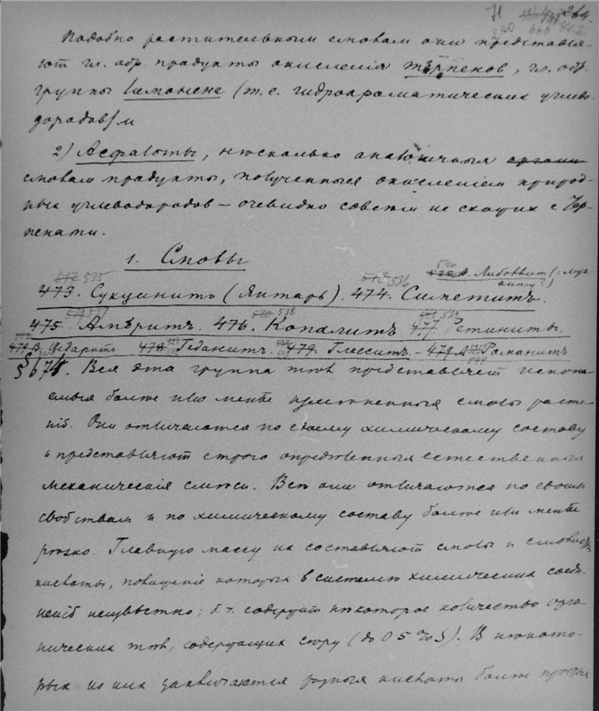 264
Подобно растительным смолам они представля
ют гл. обр. продукты окисления терпенов, гл. обр.
группы лимонена (т.е. гидроароматических углево
дородов)
2) Асфальты, несколько аналогичные
смолам продукты, полученные окислением природ
ных углеводородов – очевидно совсем не схожих с тер
пенами.
1. Смолы
535 536
473. Сукцинитъ (Янтарь). 474. Симетитъ.
538
475. Амбритъ. 476. Копалитъ. 477. Ретиниты.
Кедаритъ 478. Геданитъ. 479. Глесситъ. – 479 А Романитъ
§ 674. Вся эта группа тѣл представляет ископа
емыя болѣе или менѣе измѣненныя смолы расте
ній. Они отличаются по своему химическому составу
и представляют строго опредѣленныя естественныя
механическія смѣси. Все они отличаются по своим
свойствам и по химическому составу болѣе или менѣе
рѣзко. Главную массу их составляют смолы и смолян
кислоты, положение которых в системѣ химических соед
неній неизвѣстно; б. ч. содержат нѣкоторое количество орга
нических тѣл, содержащих сѣру (до 0.5 % S). В нѣкото
рых из них заключаются разныя кислоты болѣе